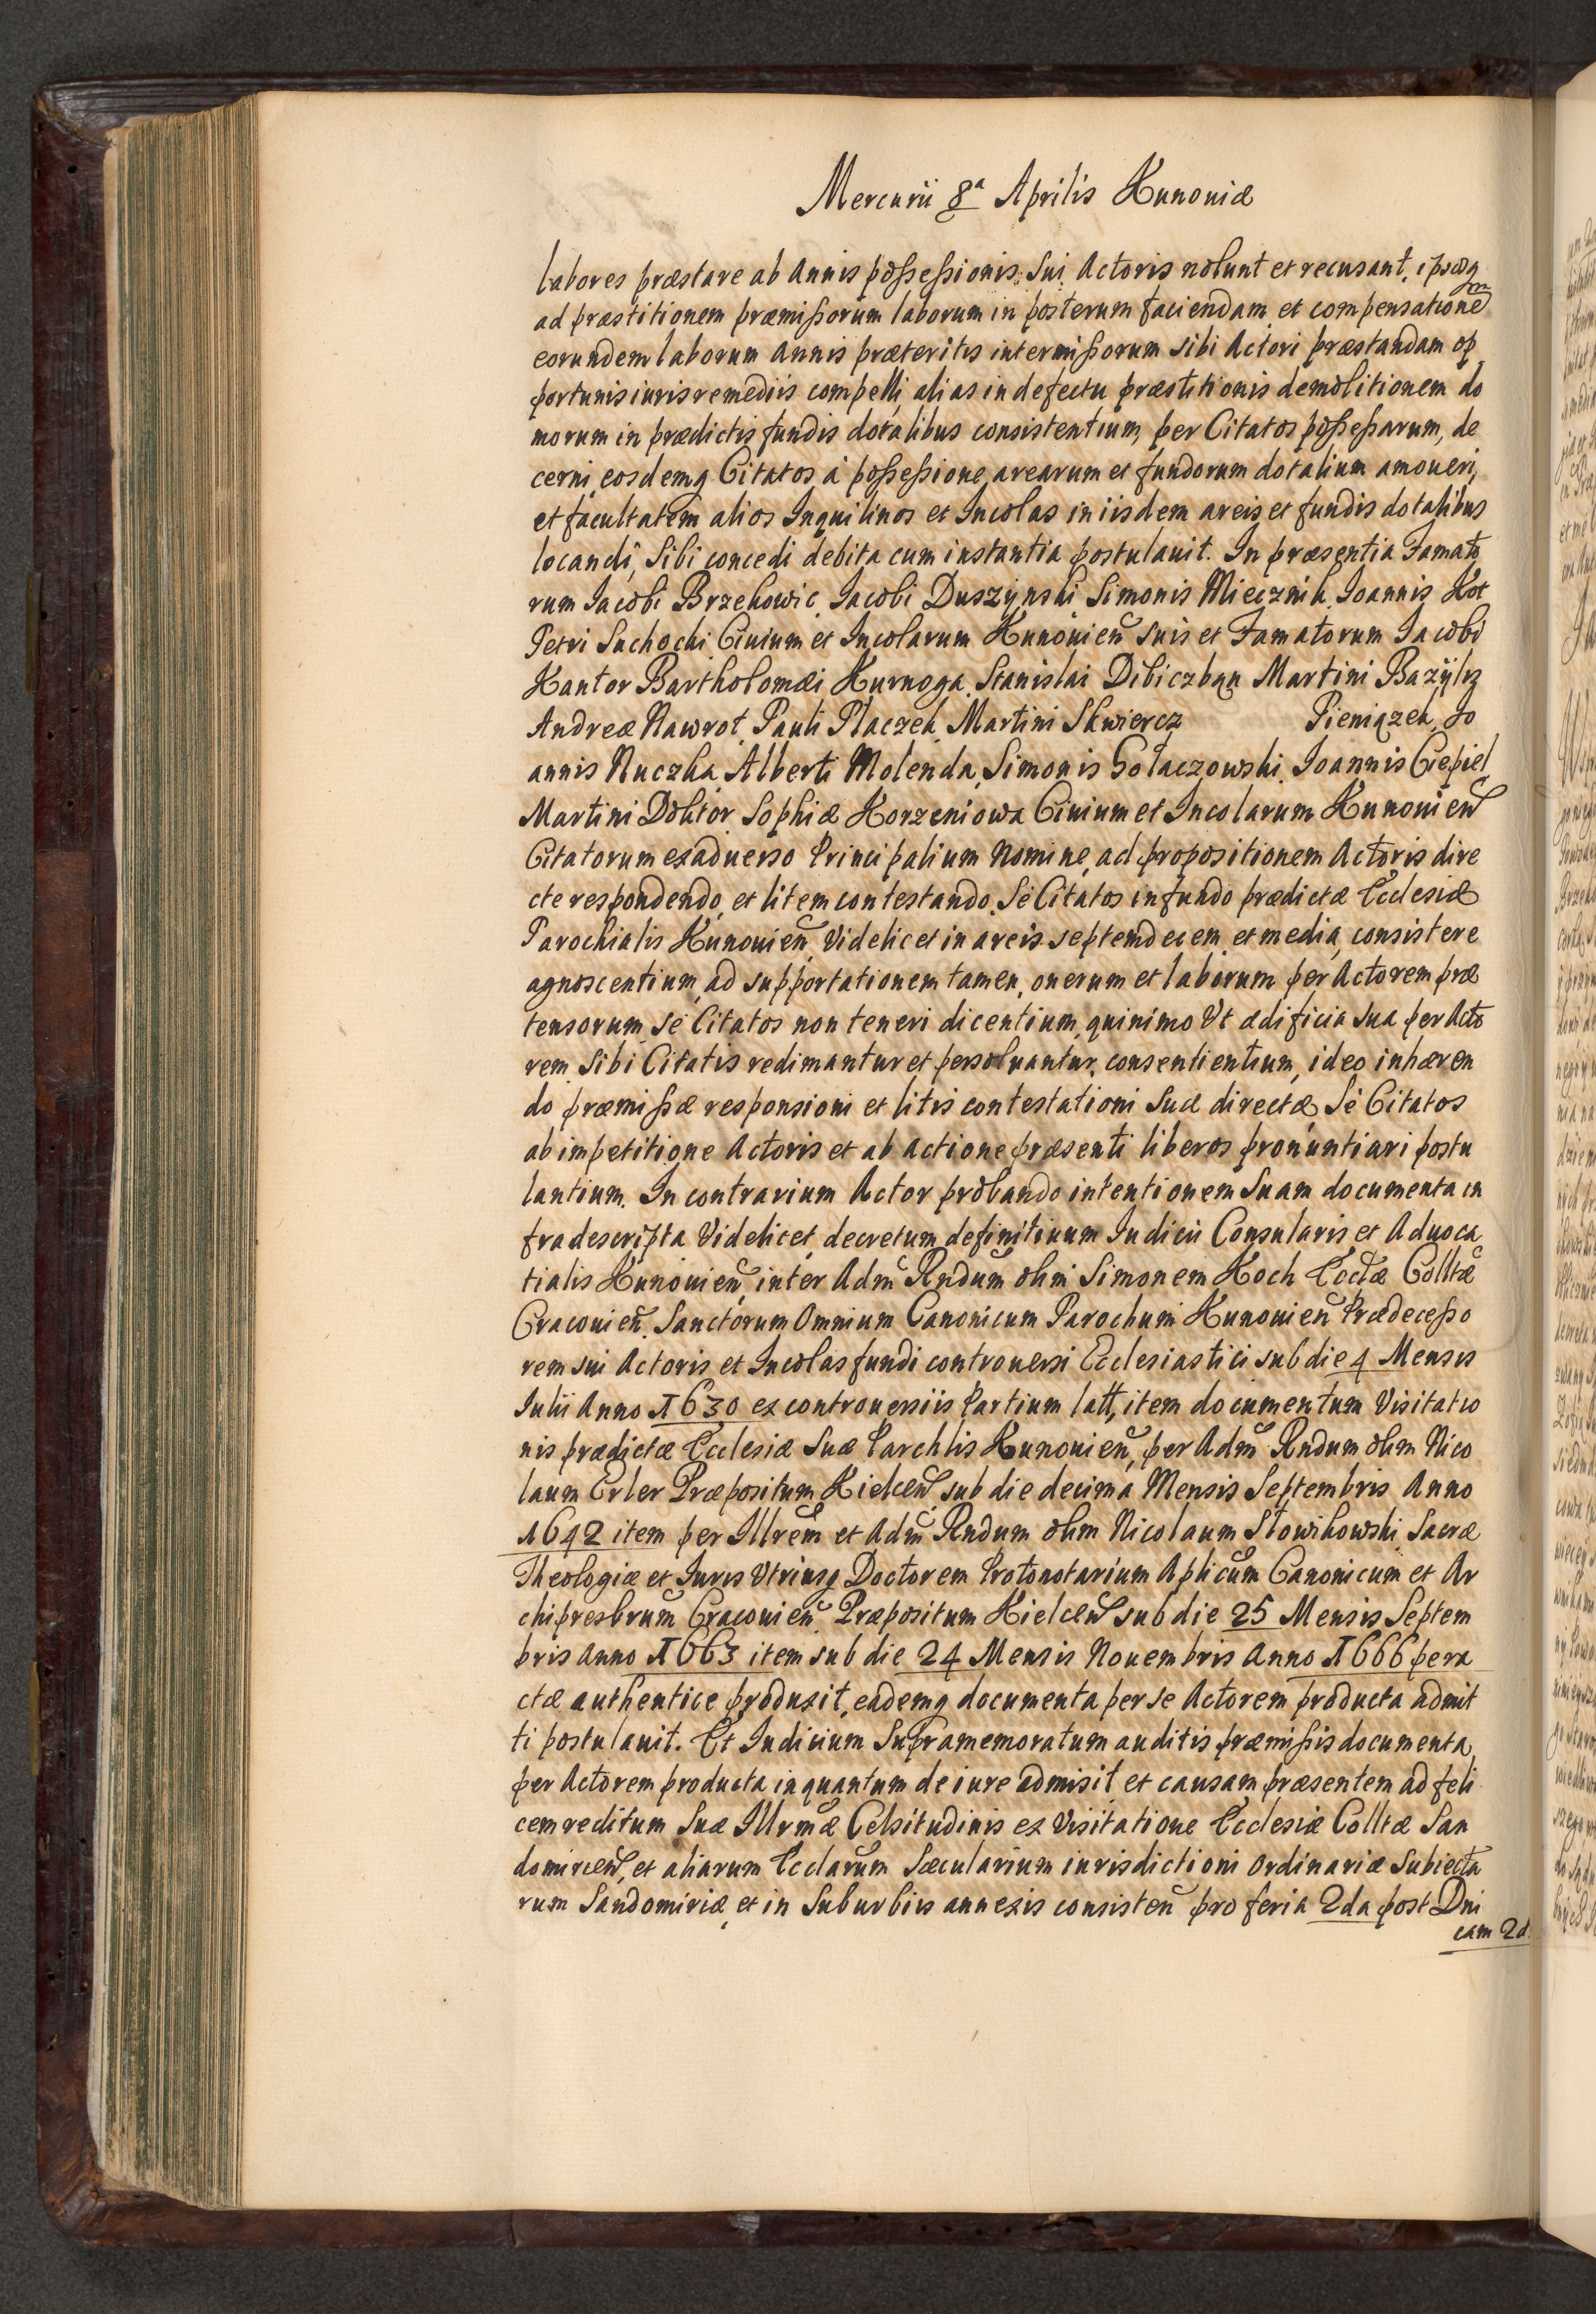 Mercurii 8ᵃ Aprilis Kunoviæ
labores præstare ab Annis possessionis sui Actoris nolunt et recusant, ipsosq
ad præstitionem præmissorum laborum in posterum faciendam et compensationem
eorundem laborum Annis præteritis intermissorum sibi Actori præstandam op
portunis iuris remediis compelli, alias in defectu præstitionis demolitionem do
morum in prædictis fundis dotalibus consistentium, per Citatos possessarum, de
cerni, eosdemq Citatos à possessione arearum et fundorum dotalium amoueri,
et facultatem alios Inquilinos et Incolas in iisdem areis et fundis dotalibus
locandi, sibi concedi debita cum instantia postulauit. In præsentia Famato
rum Iacobi Brzekowic, Iacobi Duszynski Simonis Miecznik, Ioannis Kot
Petri Suchocki Ciuium et Incolarum Kunouien̄ suis et Famatorum Iacobi
Kantor Bartholomæi Kurnoga, Stanislai Dibiczban Martini Bazÿlz
Andreæ Nawrot, Pauli Płaczek, Martini Skwiercz Pieniązek, Jo
annis Nuczka, Alberti Molenda, Simonis Gołaczowski, Ioannis Ciepiel
Martini Doktor Sophiæ Korzeniowa Ciuium et Incolarum Kunouien̄
Citatorum ex aduerso Principalium Nomine, ad propositionem Actoris dire
cte respondendo, et litem contestando. Se Citatos in fundo prædictæ Ecclesiæ
Parochialis Kunouien̄, Videlicet in areis septemdecem et media, consistere
agnoscentium, ad supportationem tamen, onerum et laborum per Actorem præ
tensorum se Citatos non teneri dicentium, quinimo Vt ædificia sua per Acto
rem sibi Citatis redimantur et persoluantur, consentientium, ideo inhæren
do præmissæ responsioni et litis contestationi suæ directæ, Se Citatos
ab impetitione Actoris et ab actione præsenti liberos pronuntiari postu
lantium. In contrarium Actor probando intentionem suam documenta in
frascripta Videlicet, decretum definitiuum Iudicii Consularis et Aduoca
tialis Kunouien̄, inter Adm̄ Rndum olim Simonem Koch Ecctæ Colltæ
Cracouien̄. Sanctorum Omnium Canonicum Parochum Kunouien̄ Prædecesso
rem sui Actoris et Incolas fundi controuersi Ecclesiastici sub die 4 Mensis
Iulii Anno 1630 ex controuersiis Partium latt, item documentum Visitatio
nis prædictæ Ecclesiæ suæ Parchlis Kunouien̄, per Adm̄ Rndum olim Nico
laum Erler Præpositum Kielcen̄ sub die decima Mensis Septembris Anno
1642 item per Illrem et Adm̄ Rndum olim Nicolaum Słowikowski, Sacræ
Theologiæ et Iuris Vtriusq Doctorem Protonotarium Aplicum Canonicum et Ar
chipresbrum Cracouien̄ Præpositum Kielcen̄ sub die 25 Mensis Septem
bris Anno 1663 item sub die 24 Mensis Nouembris Anno 1666 pera
ctæ authentice produxit, eademq documenta per se Actorem producta admit
ti postulauit. Et Iudicium supramemoratum auditis præmissis documenta,
per Actorem producta inquantum de iure admisit, et causam præsentem ad feli
cem reditum suæ Illrmæ Celsitudinis ex Visitatione Ecclesiæ Colltæ San
domirien̄, et aliarum Ecclarum Sæcularium iurisdictioni ordinariæ subiecta
rum Sandomiriæ, et in suburbiis annexis consisten̄ pro feria 2da post Dni
cam 2d